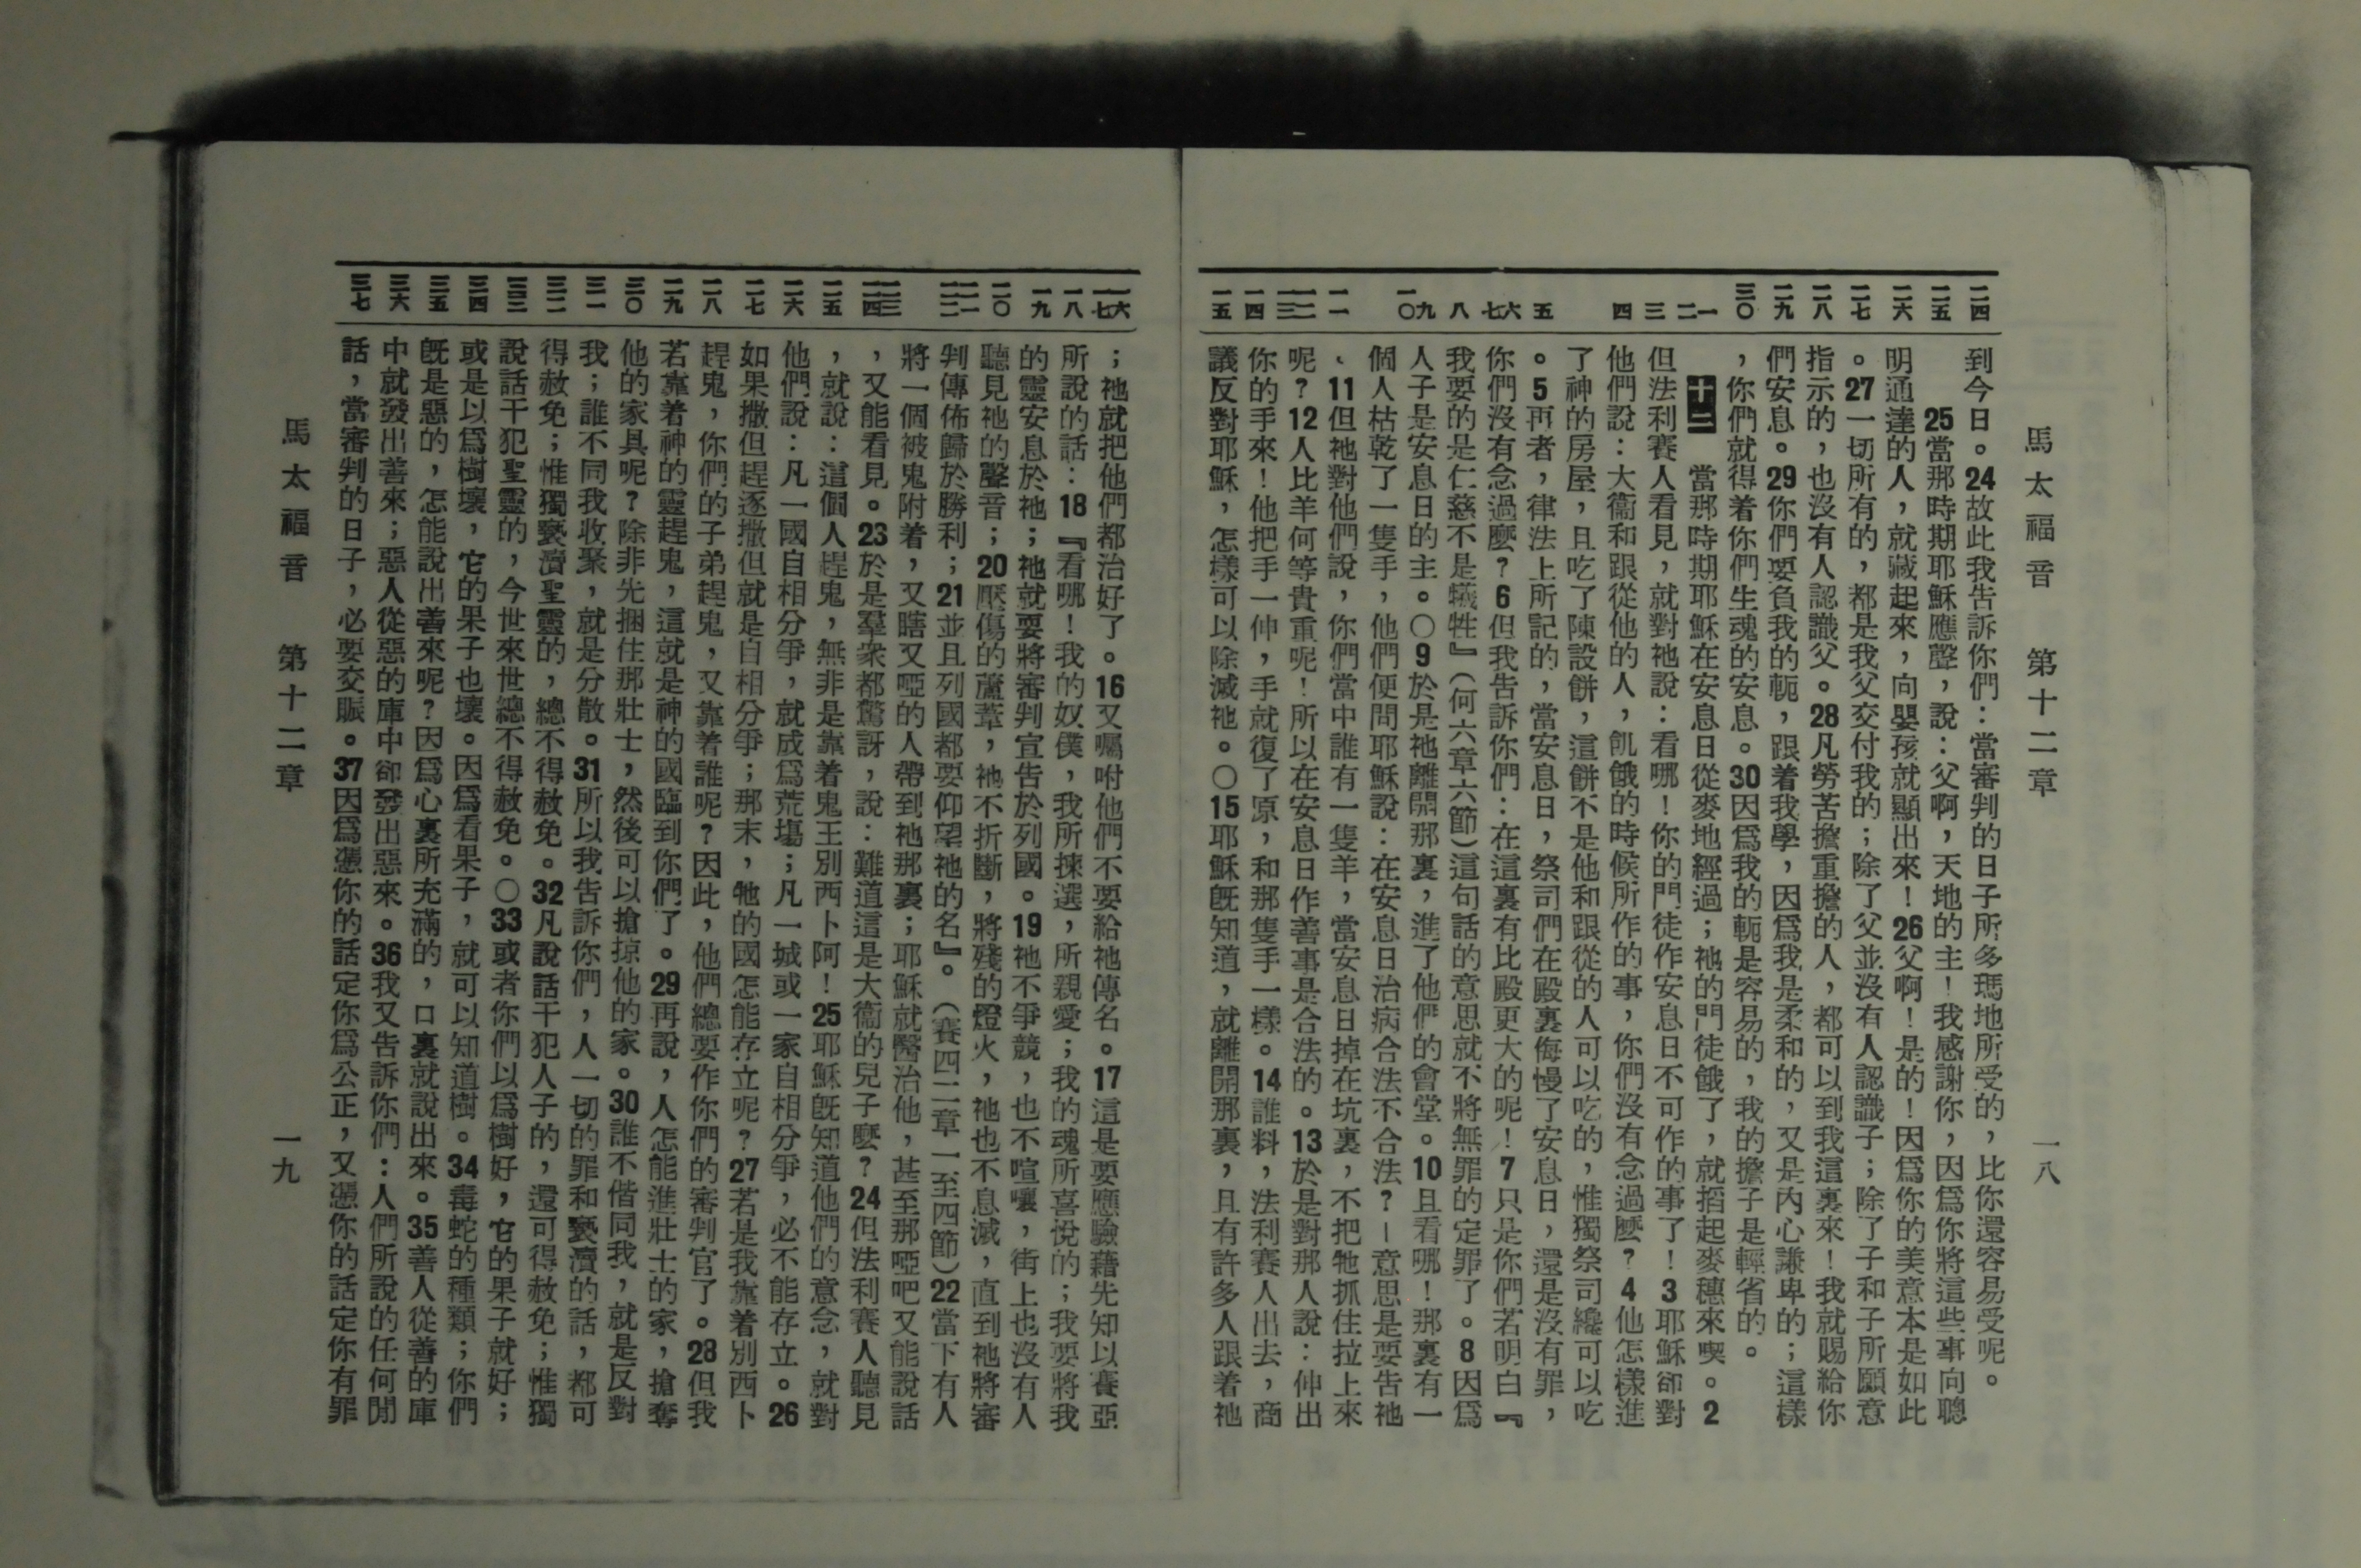 馬太福音　第十二章　一八
二四
二五
二六
二七
二八
二九
三〇
一
二
三
四
五
六
七
八
九
一〇
一一
一二
一三
一四
一五
到今日。24故此我告訴你們：當審判的日子所多瑪地所受的，比你還容易受呢。
25當那時期耶穌應聲，說：父啊，天地的主！我感謝你，因爲你將這些事向聰
明通達的人，就藏起來，向嬰孩就顯出來！26父啊！是的！因爲你的美意本是如此
。27一切所有的，都是我父交付我的；除了父並沒有人認識子；除了子和子所願意
指示的，也沒有人認識父。28凡勞苦擔重擔的人，都可以到我這裏來！我就賜給你
們安息。29你們要負我的軛，跟着我學，因爲我是柔和的，又是內心謙卑的；這樣
，你們就得着你們生魂的安息。30因爲我的軛是容易的，我的擔子是輕省的。
十二　當那時期耶穌在安息日從麥地經過；祂的門徒餓了，就搯起麥穗來喫。2
但法利賽人看見，就對祂說：看哪！你的門徒作安息日不可作的事了！3耶穌卻對
他們說：大衞和跟從他的人，飢餓的時候所作的事，你們沒有念過麼？4他怎樣進
了神的房屋，且吃了陳設餅，這餅不是他和跟從的人可以吃的，惟獨祭司纔可以吃
。5再者，律法上所記的，當安息日，祭司們在殿裏侮慢了安息日，還是沒有罪，
你們沒有念過麼？6但我告訴你們：在這裏有比殿更大的呢！7只是你們若明白『
我要的是仁慈不是犧牲』（何六章六節）這句話的意思就不將無罪的定罪了。8因爲
人子是安息日的主。〇9於是祂離開那裏，進了他們的會堂。10且看哪！那裏有一
個人枯乾了一隻手，他們便問耶穌說：在安息日治病合法不合法？—意思是要告祂
、11但祂對他們說，你們當中誰有一隻羊，當安息日掉在坑裏，不把牠抓住拉上來
呢？12人比羊何等貴重呢！所以在安息日作善事是合法的。13於是對那人說：伸出
你的手來！他把手一伸，手就復了原，和那隻手一樣。14誰料，法利賽人出去，商
議反對耶穌，怎樣可以除滅祂。〇15耶穌旣知道，就離開那裏，且有許多人跟着祂
一六
一七
一八
一九
二〇
二一
二二
二三
二四
二五
二六
二七
二八
二九
三〇
三一
三二
三三
三四
三五
三六
三七
；祂就把他們都治好了。16又囑咐他們不要給祂傳名。17這是要應驗藉先知以賽亞
所說的話：18『看哪！我的奴僕，我所揀選，所親愛；我的魂所喜悅的；我要將我
的靈安息於祂；祂就要將審判宣告於列國。19祂不爭競，也不喧嚷，街上也沒有人
聽見祂的聲音；20壓傷的蘆葦，祂不折斷，將殘的燈火，祂也不息滅，直到祂將審
判傳佈歸於勝利；21並且列國都要仰望祂的名』。（賽四二章一至四節）22當下有人
將一個被鬼附着，又瞎又啞的人帶到祂那裏；耶穌就醫治他，甚至那啞吧又能說話
，又能看見。23於是羣衆都驚訝，說：難道這是大衞的兒子麼？24但法利賽人聽見
，就說：這個人趕鬼，無非是靠着鬼王別西卜阿！25耶穌旣知道他們的意念，就對
他們說：凡一國自相分爭，就成爲荒塲；凡一城或一家自相分爭，必不能存立。26
如果撒但趕逐撒但就是自相分爭；那末，牠的國怎能存立呢？27若是我靠着別西卜
趕鬼，你們的子弟趕鬼，又靠着誰呢？因此，他們總要作你們的審判官了。28但我
若靠着神的靈趕鬼，這就是神的國臨到你們了。29再說，人怎能進壯士的家，搶奪
他的家具呢？除非先捆住那壯士，然後可以搶掠他的家。30誰不偕同我，就是反對
我；誰不同我收聚，就是分散。31所以我告訴你們，人一切的罪和褻瀆的話，都可
得赦免；惟獨褻瀆聖靈的，總不得赦免。32凡說話干犯人子的，還可得赦免；惟獨
說話干犯聖靈的，今世來世總不得赦免。〇33或者你們以爲樹好，它的果子就好；
或是以爲樹壞，它的果子也壞。因爲看果子，就可以知道樹。34毒蛇的種類；你們
旣是惡的，怎能說出善來呢？因爲心裏所充滿的，口裏就說出來。35善人從善的庫
中就發出善來；惡人從惡的庫中卻發出惡來。36我又告訴你們：人們所說的任何閒
話，當審判的日子，必要交賬。37因爲憑你的話定你爲公正，又憑你的話定你有罪
馬太福音　第十二章　一九